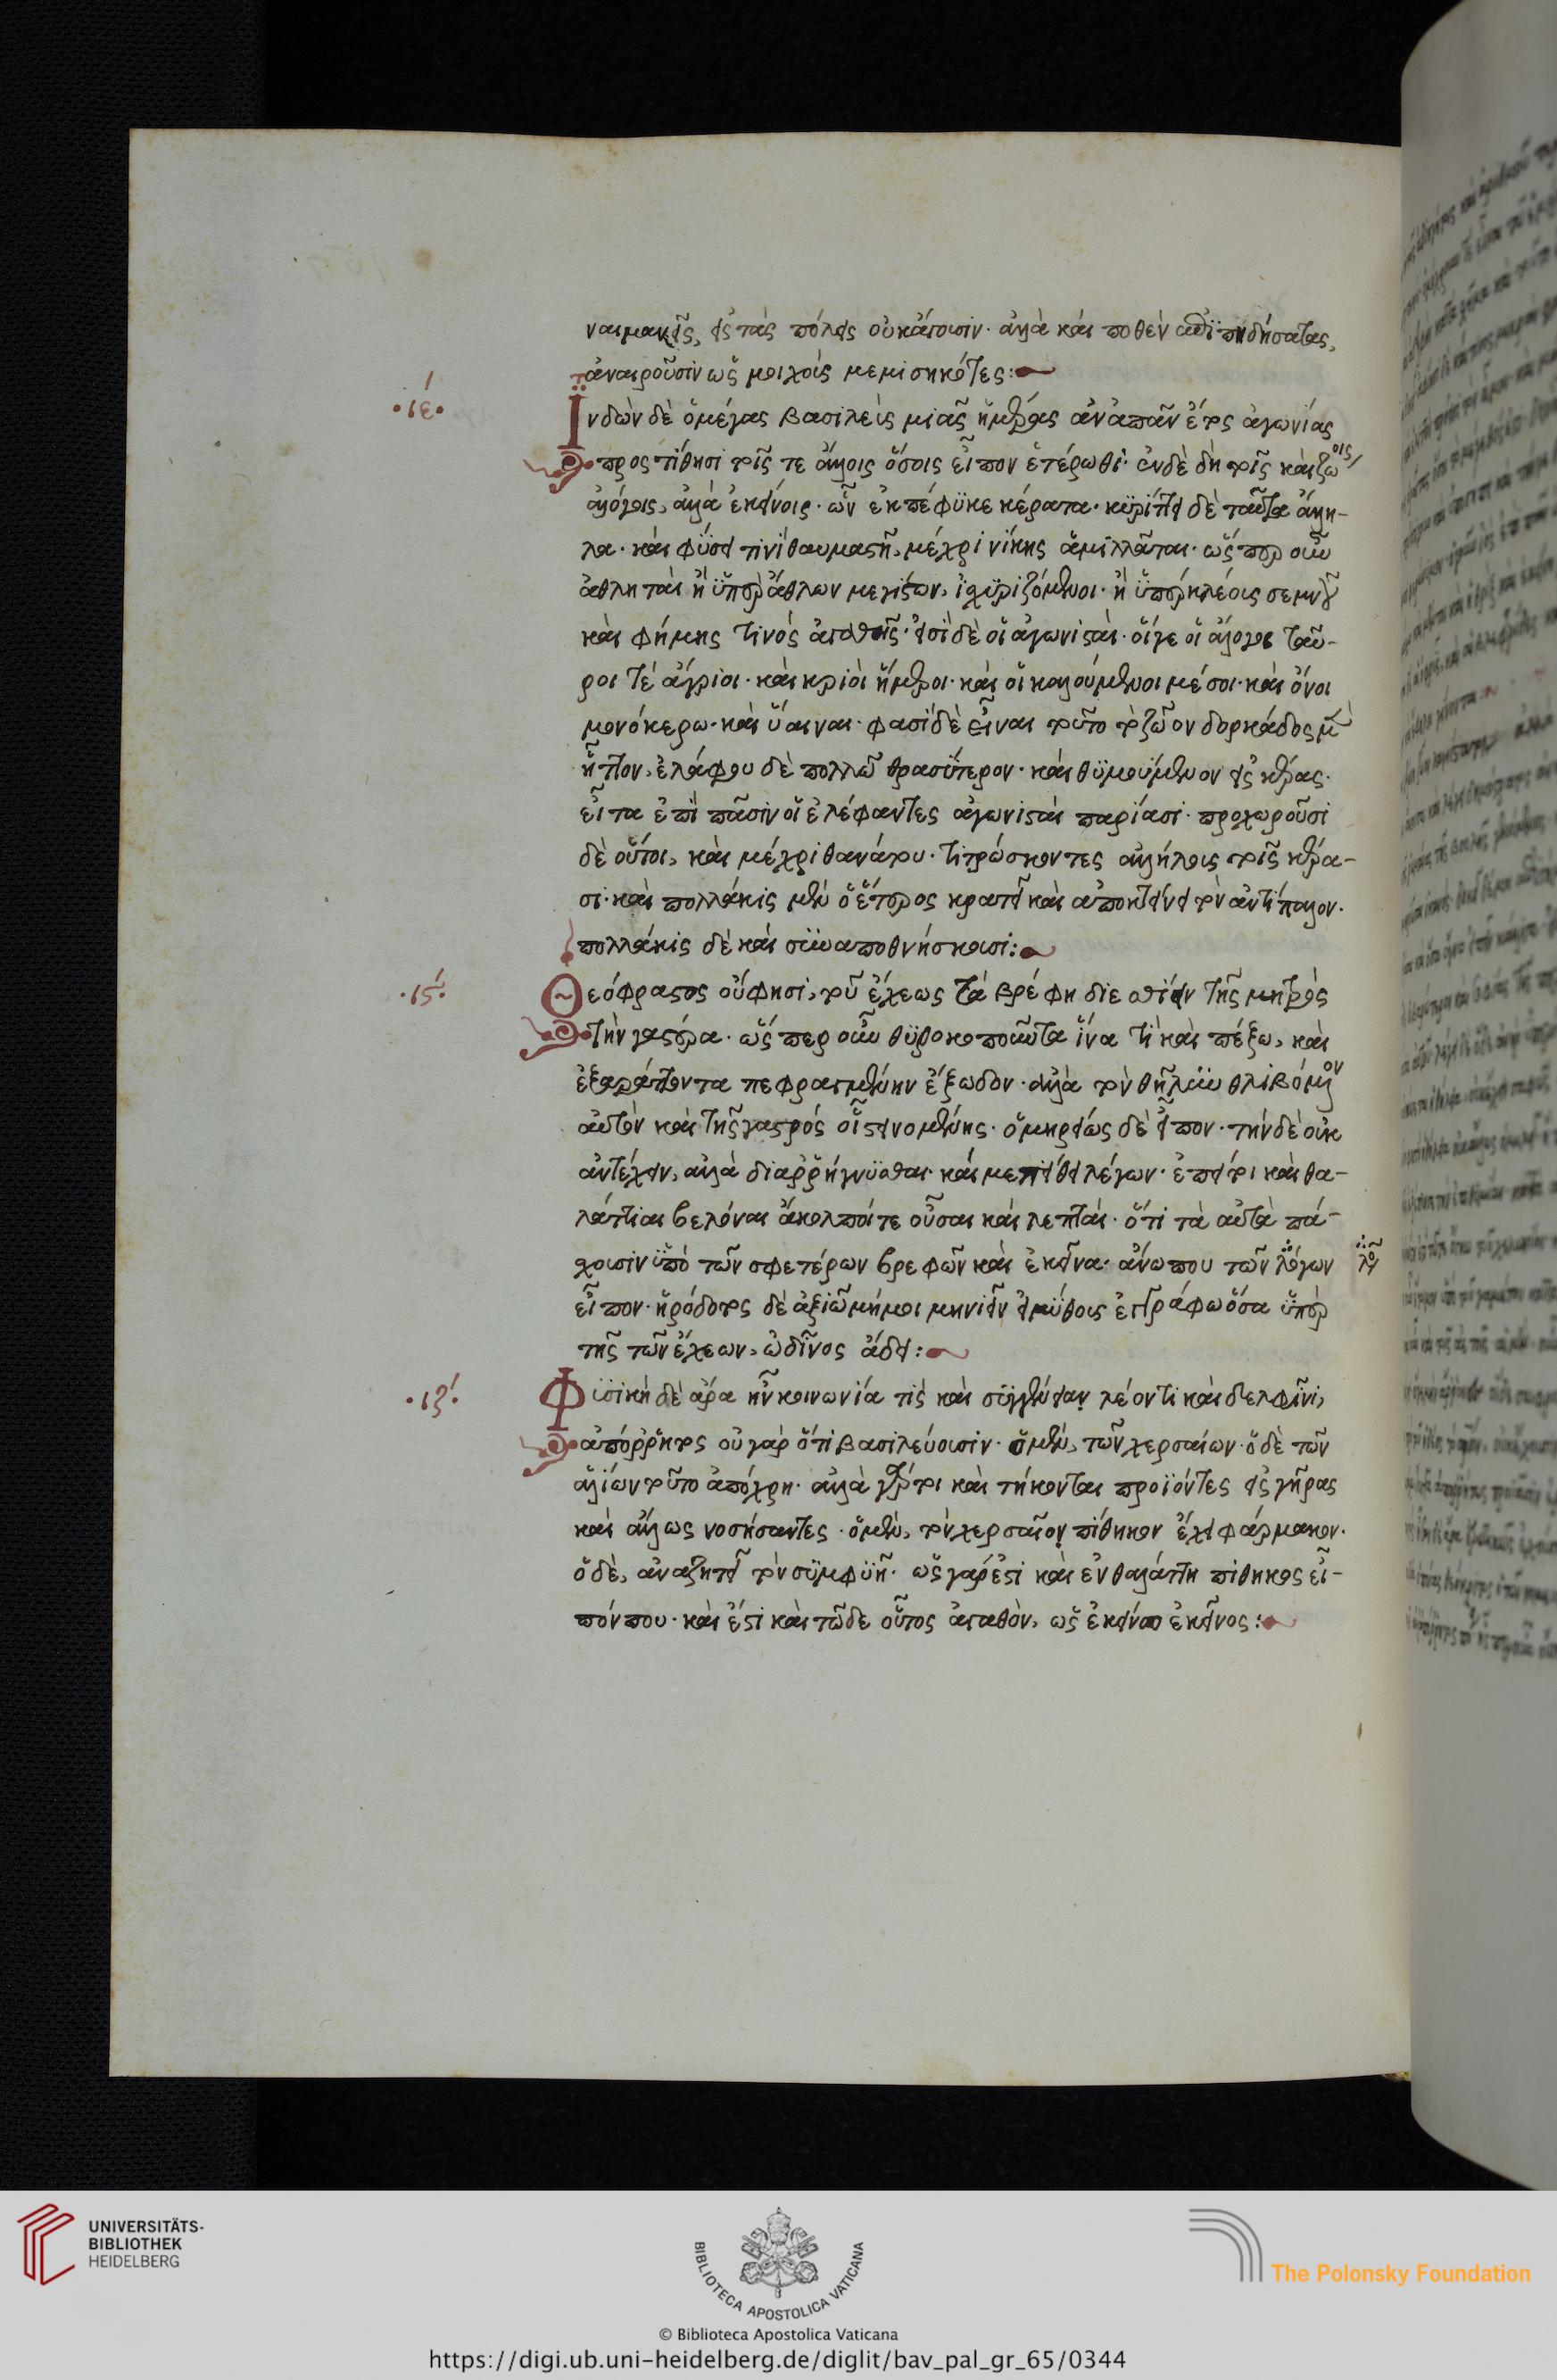 ναιμανεῖς, εἰς τὰς πόλεις οὐκ ἄγουσιν· ἀλλὰ καὶ ποθὲν ἐπεισπηδήσαντας,
ἀναιροῦσιν ὡς μοιχοὺς μεμισηκότες:
·ιε·
Ἰνδῶν δὲ ὁ μέγας βασιλεὺς μιᾶς ἡμέρας ἀνὰ πᾶν ἔτος ἀγωνίας
προστίθησι τοῖς τε ἄλλοις ὅσοις εἶπον ἑτέρωθι· ἐν δὲ δὴ τοῖς καὶ ζώοις
ἀλόγοις, ἀλλὰ ἐκείνοις· ὧν ἐκπέφυκε κέρατα· κυρίττει δὲ ταῦτα ἄλλη-
λα· καὶ φύσει τινὶ θαυμαστῇ, μέχρι νίκης ἁμιλλᾶται· ὥσπερ οὖν
ἀθληταὶ ἢ ὑπὲρ ἄθλων μεγίστων, ἰσχυριζόμενοι· ἢ ὑπὲρ κλέους σεμνοῦ
καὶ φήμης τινὸς ἀγαθῆς· εἰσὶ δὲ οἱ ἀγωνισταὶ· οἵγε οἱ ἄλογοι ταῦ-
ροι τέ ἄγριοι· καὶ κριοὶ ἥμεροι· καὶ οἱ καλούμενοι μέσοι· καὶ ὄνοι
μονόκερω· καὶ ὕαιναι· φασὶ δὲ εἶναι τοῦτο τὸ ζῶον δορκάδος μὲν
ἧττον, ἐλάφου δὲ πολλῶ θρασύτερον· καὶ θυμούμενον εἰς κέρας·
εἶτα ἐπὶ πᾶσιν οἱ ἐλέφαντες ἀγωνισταὶ παρίασι· προχωροῦσι
δὲ οὗτοι, καὶ μέχρι θανάτου· τιτρώσκοντες ἀλλήλοις τοῖς κέρα-
σι· καὶ πολλάκις μὲν ὁ ἕτερος κρατεῖ καὶ ἀποκτείνει τὸν ἀντίπαλον·
πολλάκις δὲ καὶ συναποθνήσκουσι:
·ις·
Θεόφραστος οὔ φησι, τοῦ ἔχεως τὰ βρέφη διεσθίειν τῆς μητρὸς
τὴν γαστέρα· ὥσπερ οὖν θυροκοποῦντα ἵνα τι καὶ παίξω, καὶ
ἐξαράττοντα πεφραγμένην ἔξωδον· ἀλλὰ τὸν θῆλυν θλιβόμενον
αὐτὸν καὶ τῆς γαστρός οἱ στεινομένης· ὁμηρείως δὲ εἶπον· τὴν δὲ οὐκ
ἀντέχειν, ἀλλὰ διαρρήγνυσθαι· καί με πείθει λέγων· ἐπεί τοι καὶ θα-
λάττιαι βελόναι ἄκολποί τε οὖσαι καὶ λεπταὶ· ὅτι τὰ αὐτὰ πά-
χουσιν ὑπὸ τῶν σφετέρων βρεφῶν καὶ ἐκεῖνα· ἄνω που τῶν λόγων
λό
εἶπον· ἡρόδοτος δὲ ἀξιῶ μή μοι μηνιεῖν εἰ μύθοις ἐγγράφω ὅσα ὑπὲρ
τῆς τῶν ἔχεων, ὠδῖνος ἄδει:
·ιζ·
Φυσικὴ δὲ ἄρα ἦν κοινωνία τὶς καὶ συγγένεια λέοντι καὶ δελφῖνι,
ἀπόρρητος οὐ γὰρ ὅτι βασιλεύουσιν· ὁ μὲν, τῶν χερσαίων· ὁ δὲ τῶν
ἁλίων τοῦτο ἀπόχρη· ἀλλὰ γάρ τοι καὶ τήκονται προϊόντες εἰς γῆρας
καὶ ἄλλως νοσήσαντες· ὁ μὲν, τὸν χερσαῖον πίθηκον ἔχει φάρμακον·
ὁ δὲ, ἀναζητεῖ τὸν συμφυῆ· ὡς γάρ ἐστι καὶ ἐν θαλάττη πίθηκος εἶ-
πόν που· καὶ ἔστι καὶ τῶδε οὗτος ἀγαθὸν, ὡς ἐκείνω ἐκεῖνος:
UNIVERSITÄTS-
BIBLIOTHEK
HEIDELBERG
BIBLIOTECA APOSTOLICA VATICANA
The Polonsky Foundation
© Biblioteca Apostolica Vaticana
https://digi.ub.uni-heidelberg.de/diglit/bav_pal_gr_65/0344